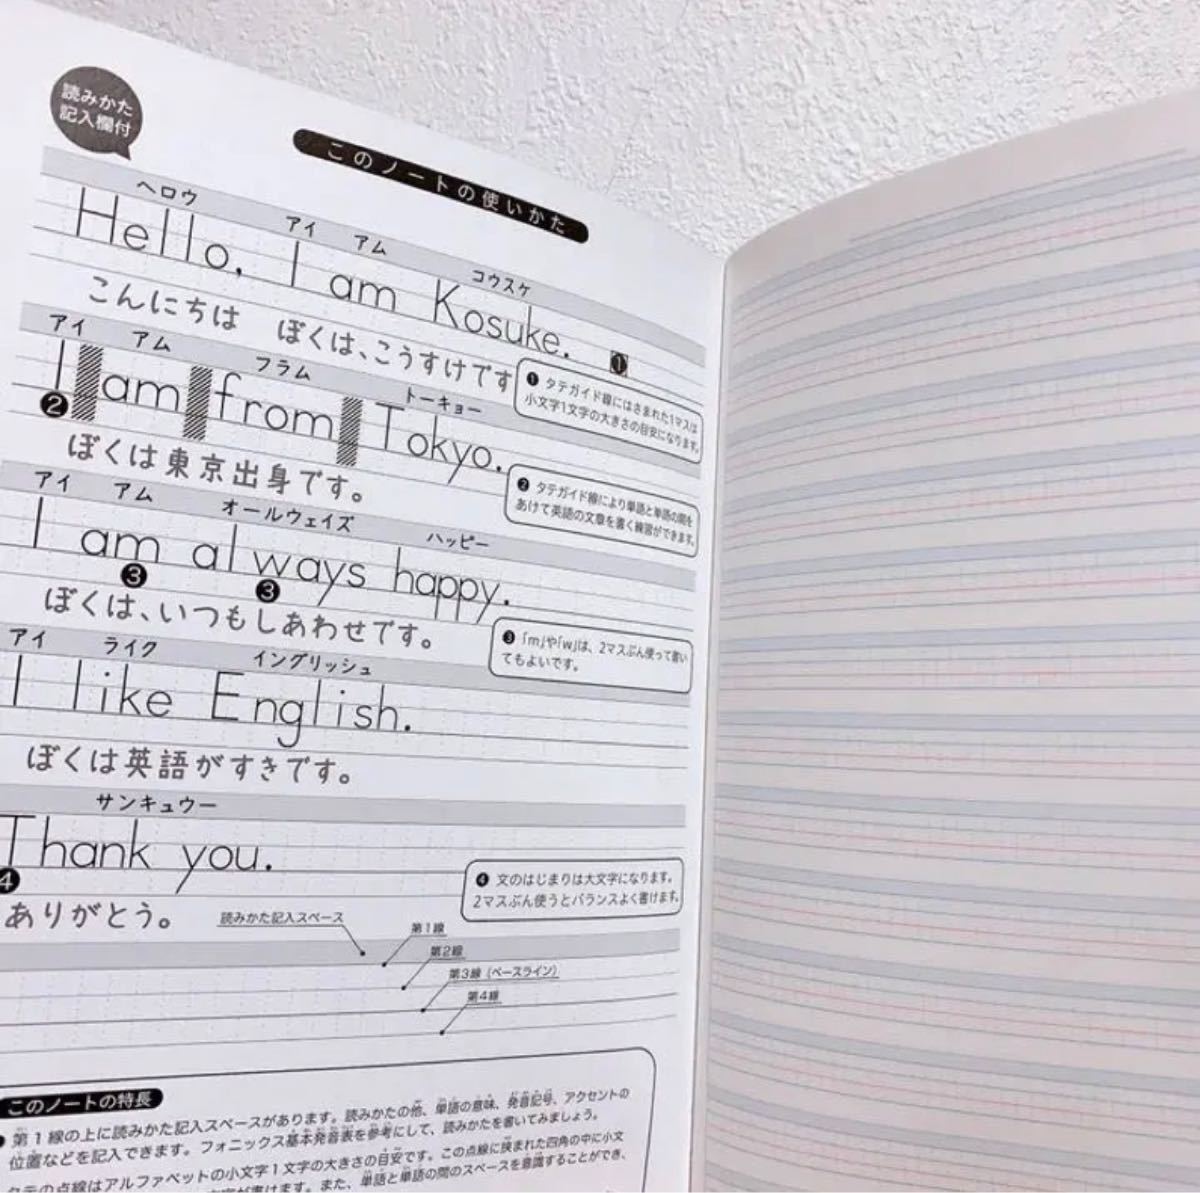 読みかた
記入欄付
このノートの使いかた
ヘロウ アイ アム コウスケ
Hello, I am Kosuke. ❶
こんにちは ぼくは、こうすけです
❶ タテガイド線にはさまれた1マスは
小文字1文字の大きさの目安になります。
アイ アム フラム トーキョー
I am from Tokyo.
❷
ぼくは東京出身です。
❷ タテガイド線により単語と単語の間を
あけて英語の文章を書く練習ができます。
アイ アム オールウェイズ ハッピー
I am always happy.
❸ ❸
ぼくは、いつもしあわせです。
❸ 「m」や「w」は、2マスぶん使って書い
てもよいです。
アイ ライク イングリッシュ
I like English.
ぼくは英語がすきです。
サンキュウー
Thank you.
❹
ありがとう。
❹ 文のはじまりは大文字になります。
2マスぶん使うとバランスよく書けます。
読みかた記入スペース
第1線
第2線
第3線(ベースライン)
第4線
このノートの特長
● 第1線の上に読みかた記入スペースがあります。読みかたの他、単語の意味、発音記号、アクセントの
位置などを記入できます。フォニックス基本発音表を参考にして、読みかたを書いてみましょう。
タテの点線はアルファベットの小文字1文字の大きさの目安です。この点線に挟まれた四角の中に小文
字が書けます。また、単語と単語の間のスペースを意識することができ、